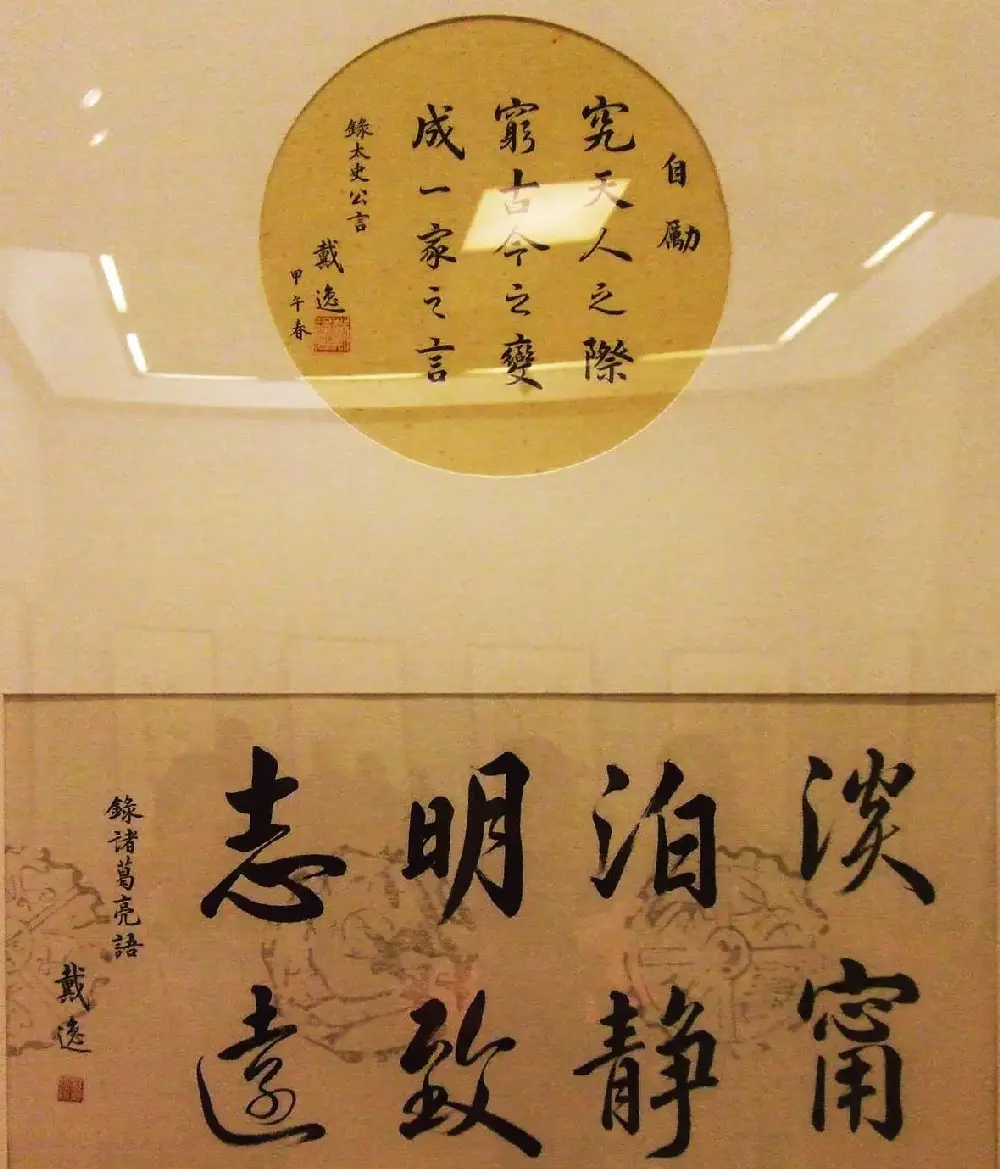 自励
究天人之際
窮古今之變
成一家之言
錄太史公言
戴逸
甲午春
淡泊明志
甯静致遠
錄諸葛亮語
戴逸